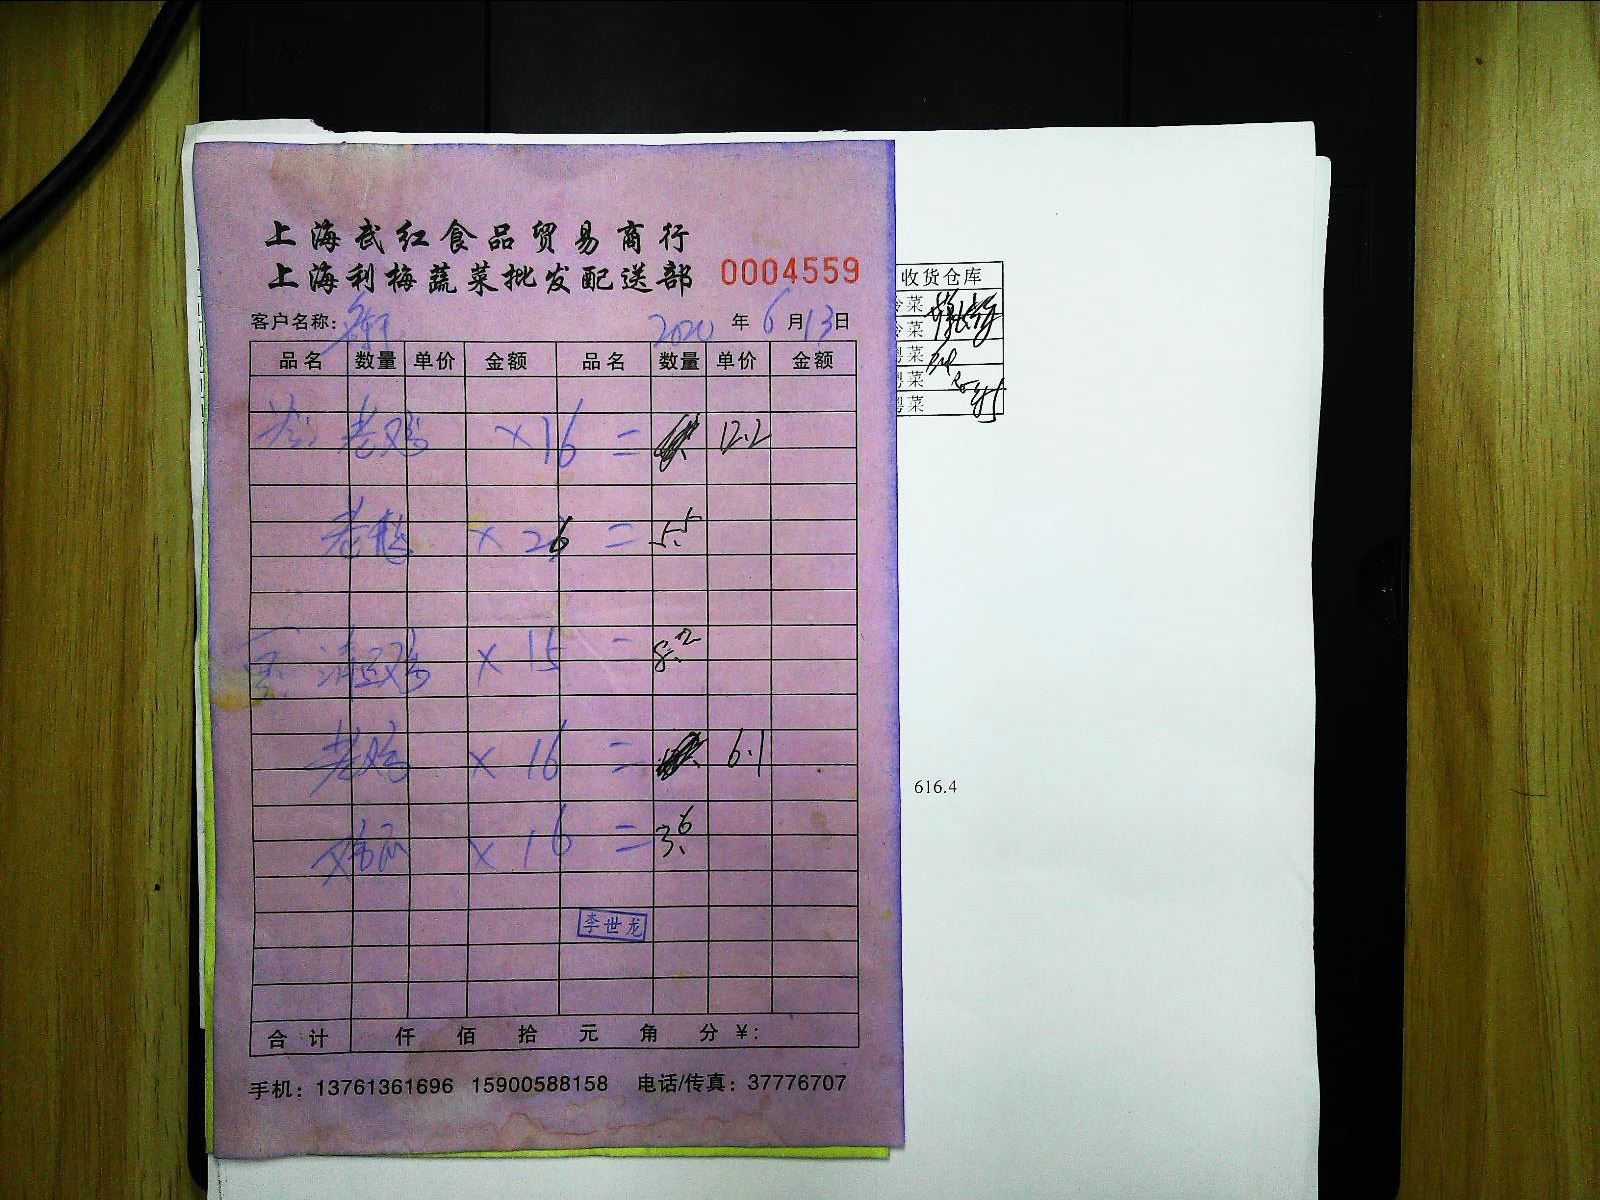 上海武红食品贸易商行
上海利梅蔬菜批发配送部 0004559
客户名称: 2020年6月13日
品名 数量 单价 金额 品名 数量 单价 金额
老鸡 ×16 = 12.2
老鸭 ×26 = 5.5
清远鸡 ×15 = 8.2
老鸡 ×16 = 6.1
×16 = 3.6
李世龙
合计 仟 佰 拾 元 角 分 ¥:
手机: 13761361696 15900588158 电话/传真: 37776707
收货仓库
冷菜
冷菜
粤菜
粤菜
粤菜
616.4